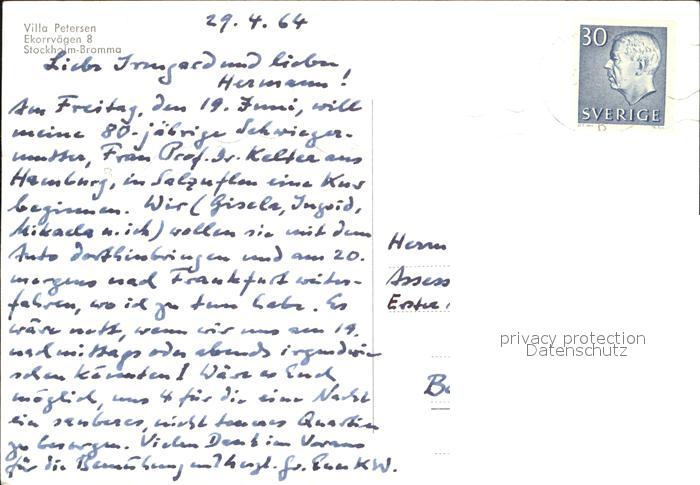 29.4.64
Villa Petersen
Ekorrvägen 8
Stockholm-Bromma
Liebe Irmgard und lieber
Hermann!
Am Freitag, den 19. Juni, will
meine 80-jährige Schwieger-
mutter, Frau Prof. Dr. Kelter aus
Hamburg, in Salzuflen eine Kur
beginnen. Wir (Gisela, Ingrid,
Mikaela u. ich) wollen sie mit dem
Auto dorthinbringen und am 20.
morgens nach Frankfurt weiter-
fahren, wo ich zu tun habe. Es
wäre nett, wenn wir uns am 19.
nachmittags oder abends irgendwie
sehen könnten! Wäre es Euch
möglich, uns 4 für die eine Nacht
ein sauberes, nicht teueres Quartier
zu besorgen. Vielen Dank im Voraus
für die Bemühung und herzl. Gr. Euer KW.
30
SVERIGE
Herrn
Assess
Erster
privacy protection
Datenschutz